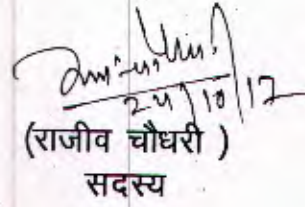 24/10/17
(राजीव चौधरी )
सदस्य